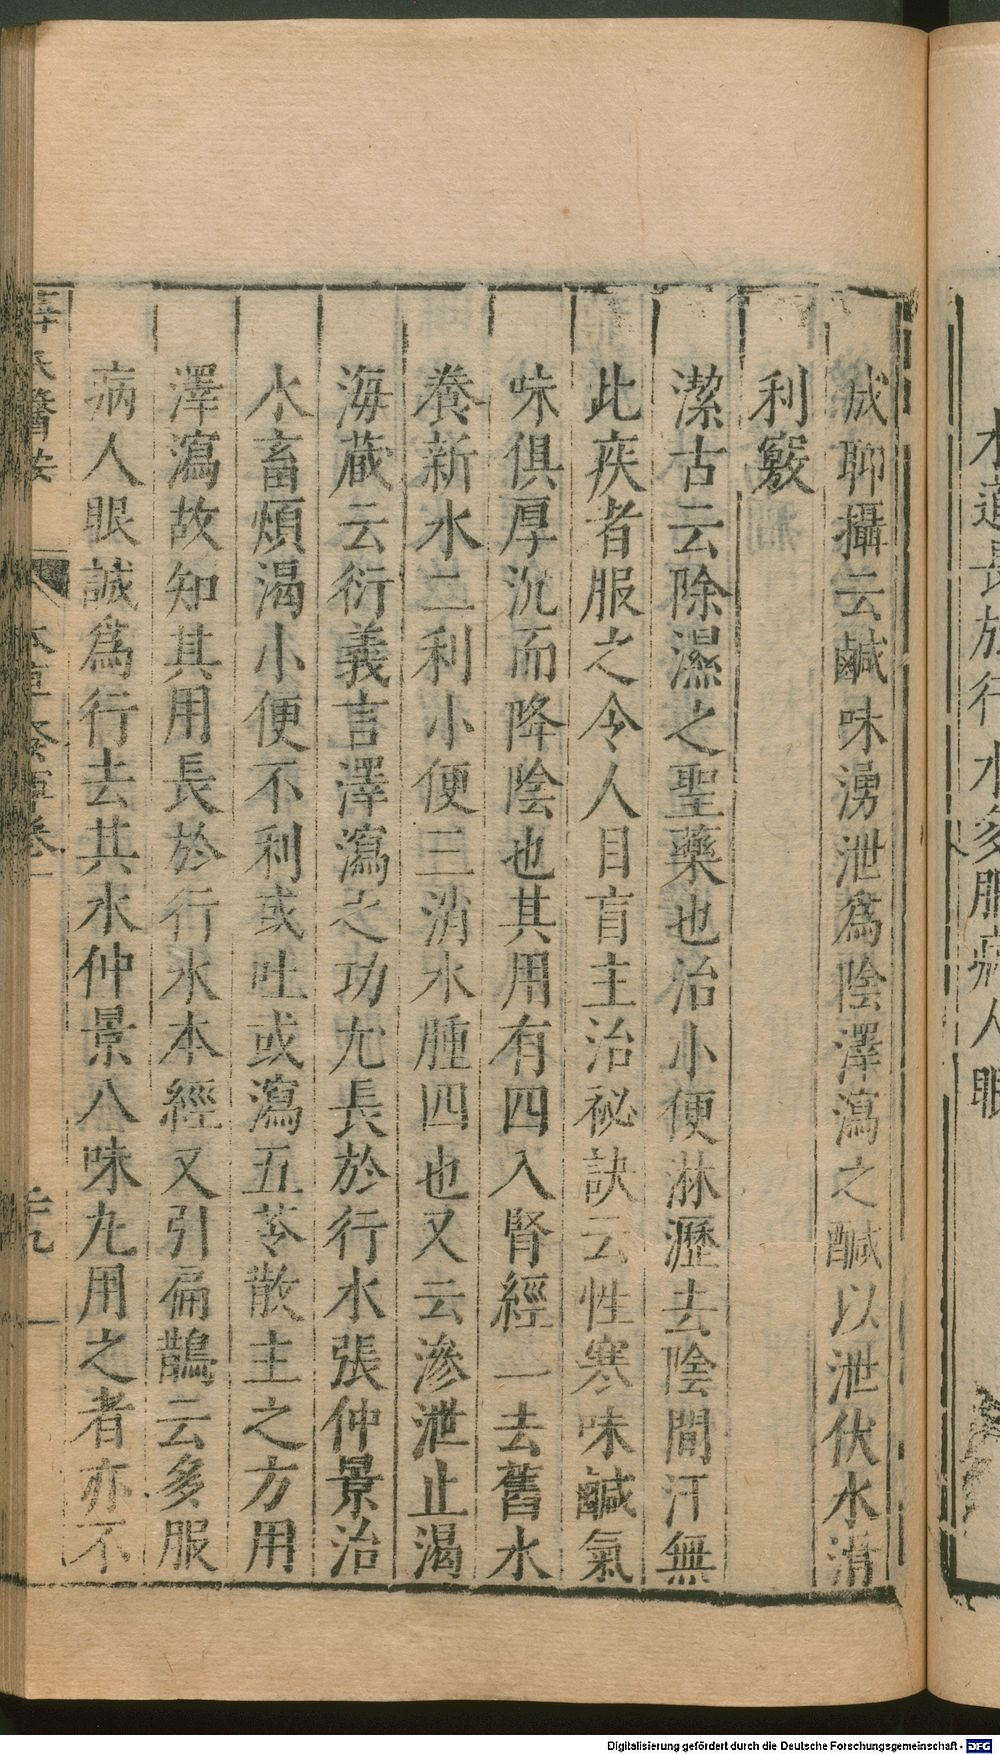 水道長於行水多服病人眼
成聊攝云鹹味湧泄爲陰澤瀉之鹹以泄伏水滑
利竅
潔古云除濕之聖藥也治小便淋瀝去陰間汗無
此疾者服之令人目盲主治祕訣云性寒味鹹氣
味俱厚沉而降陰也其用有四入腎經一去舊水
養新水二利小便三消水腫四也又云滲泄止渴
海蔵云衍義言澤瀉之功尤長於行水張仲景治
水畜煩渴小便不利或吐或瀉五苓散主之方用
澤瀉故知其用長於行水本經又引扁鵲云多服
病人眼誠爲行去其水仲景八味丸用之者亦不
薛氏醫按 本草發揮卷一
Digitalisierung gefördert durch die Deutsche Forschungsgemeinschaft - DFG